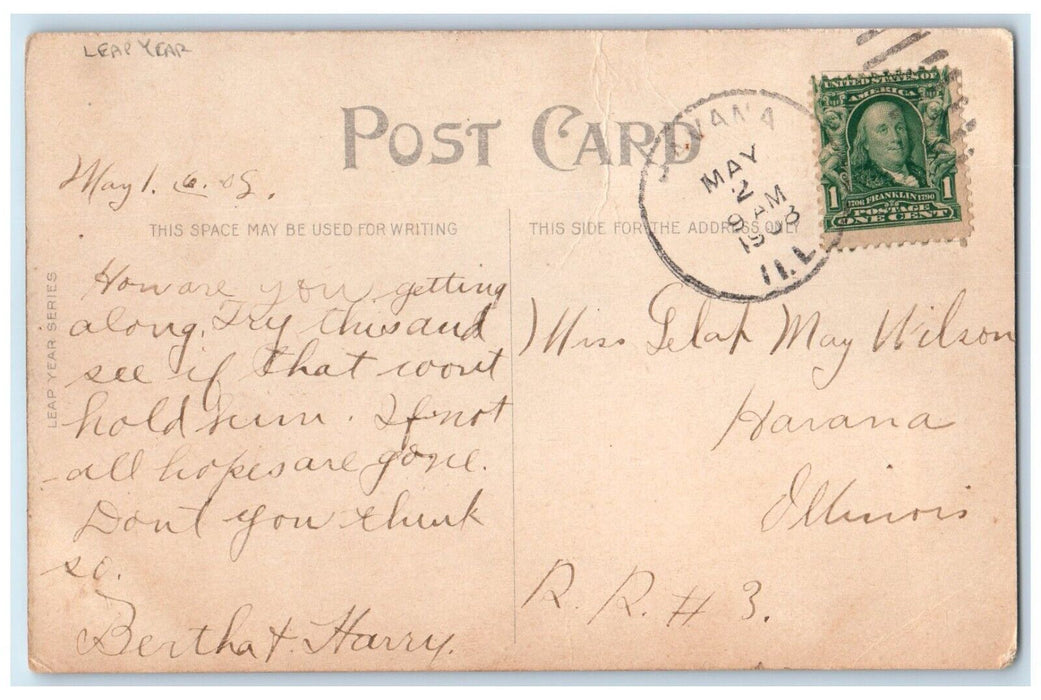 LEAP YEAR
POST CARD
HAVANA
MAY
2
9 AM
1908
ILL.
UNITED STATES OF
AMERICA
1706 FRANKLIN 1790
1 1
POSTAGE
ONE CENT
May 1. 08.
THIS SPACE MAY BE USED FOR WRITING
THIS SIDE FOR THE ADDRESS ONLY
LEAP YEAR SERIES
How are you getting
along. Try this and
see if that wont
hold him. If not
all hopes are gone.
Dont you think
so.
Bertha & Harry.
Miss May Wilson
Havana
Illinois
R. R. # 3.